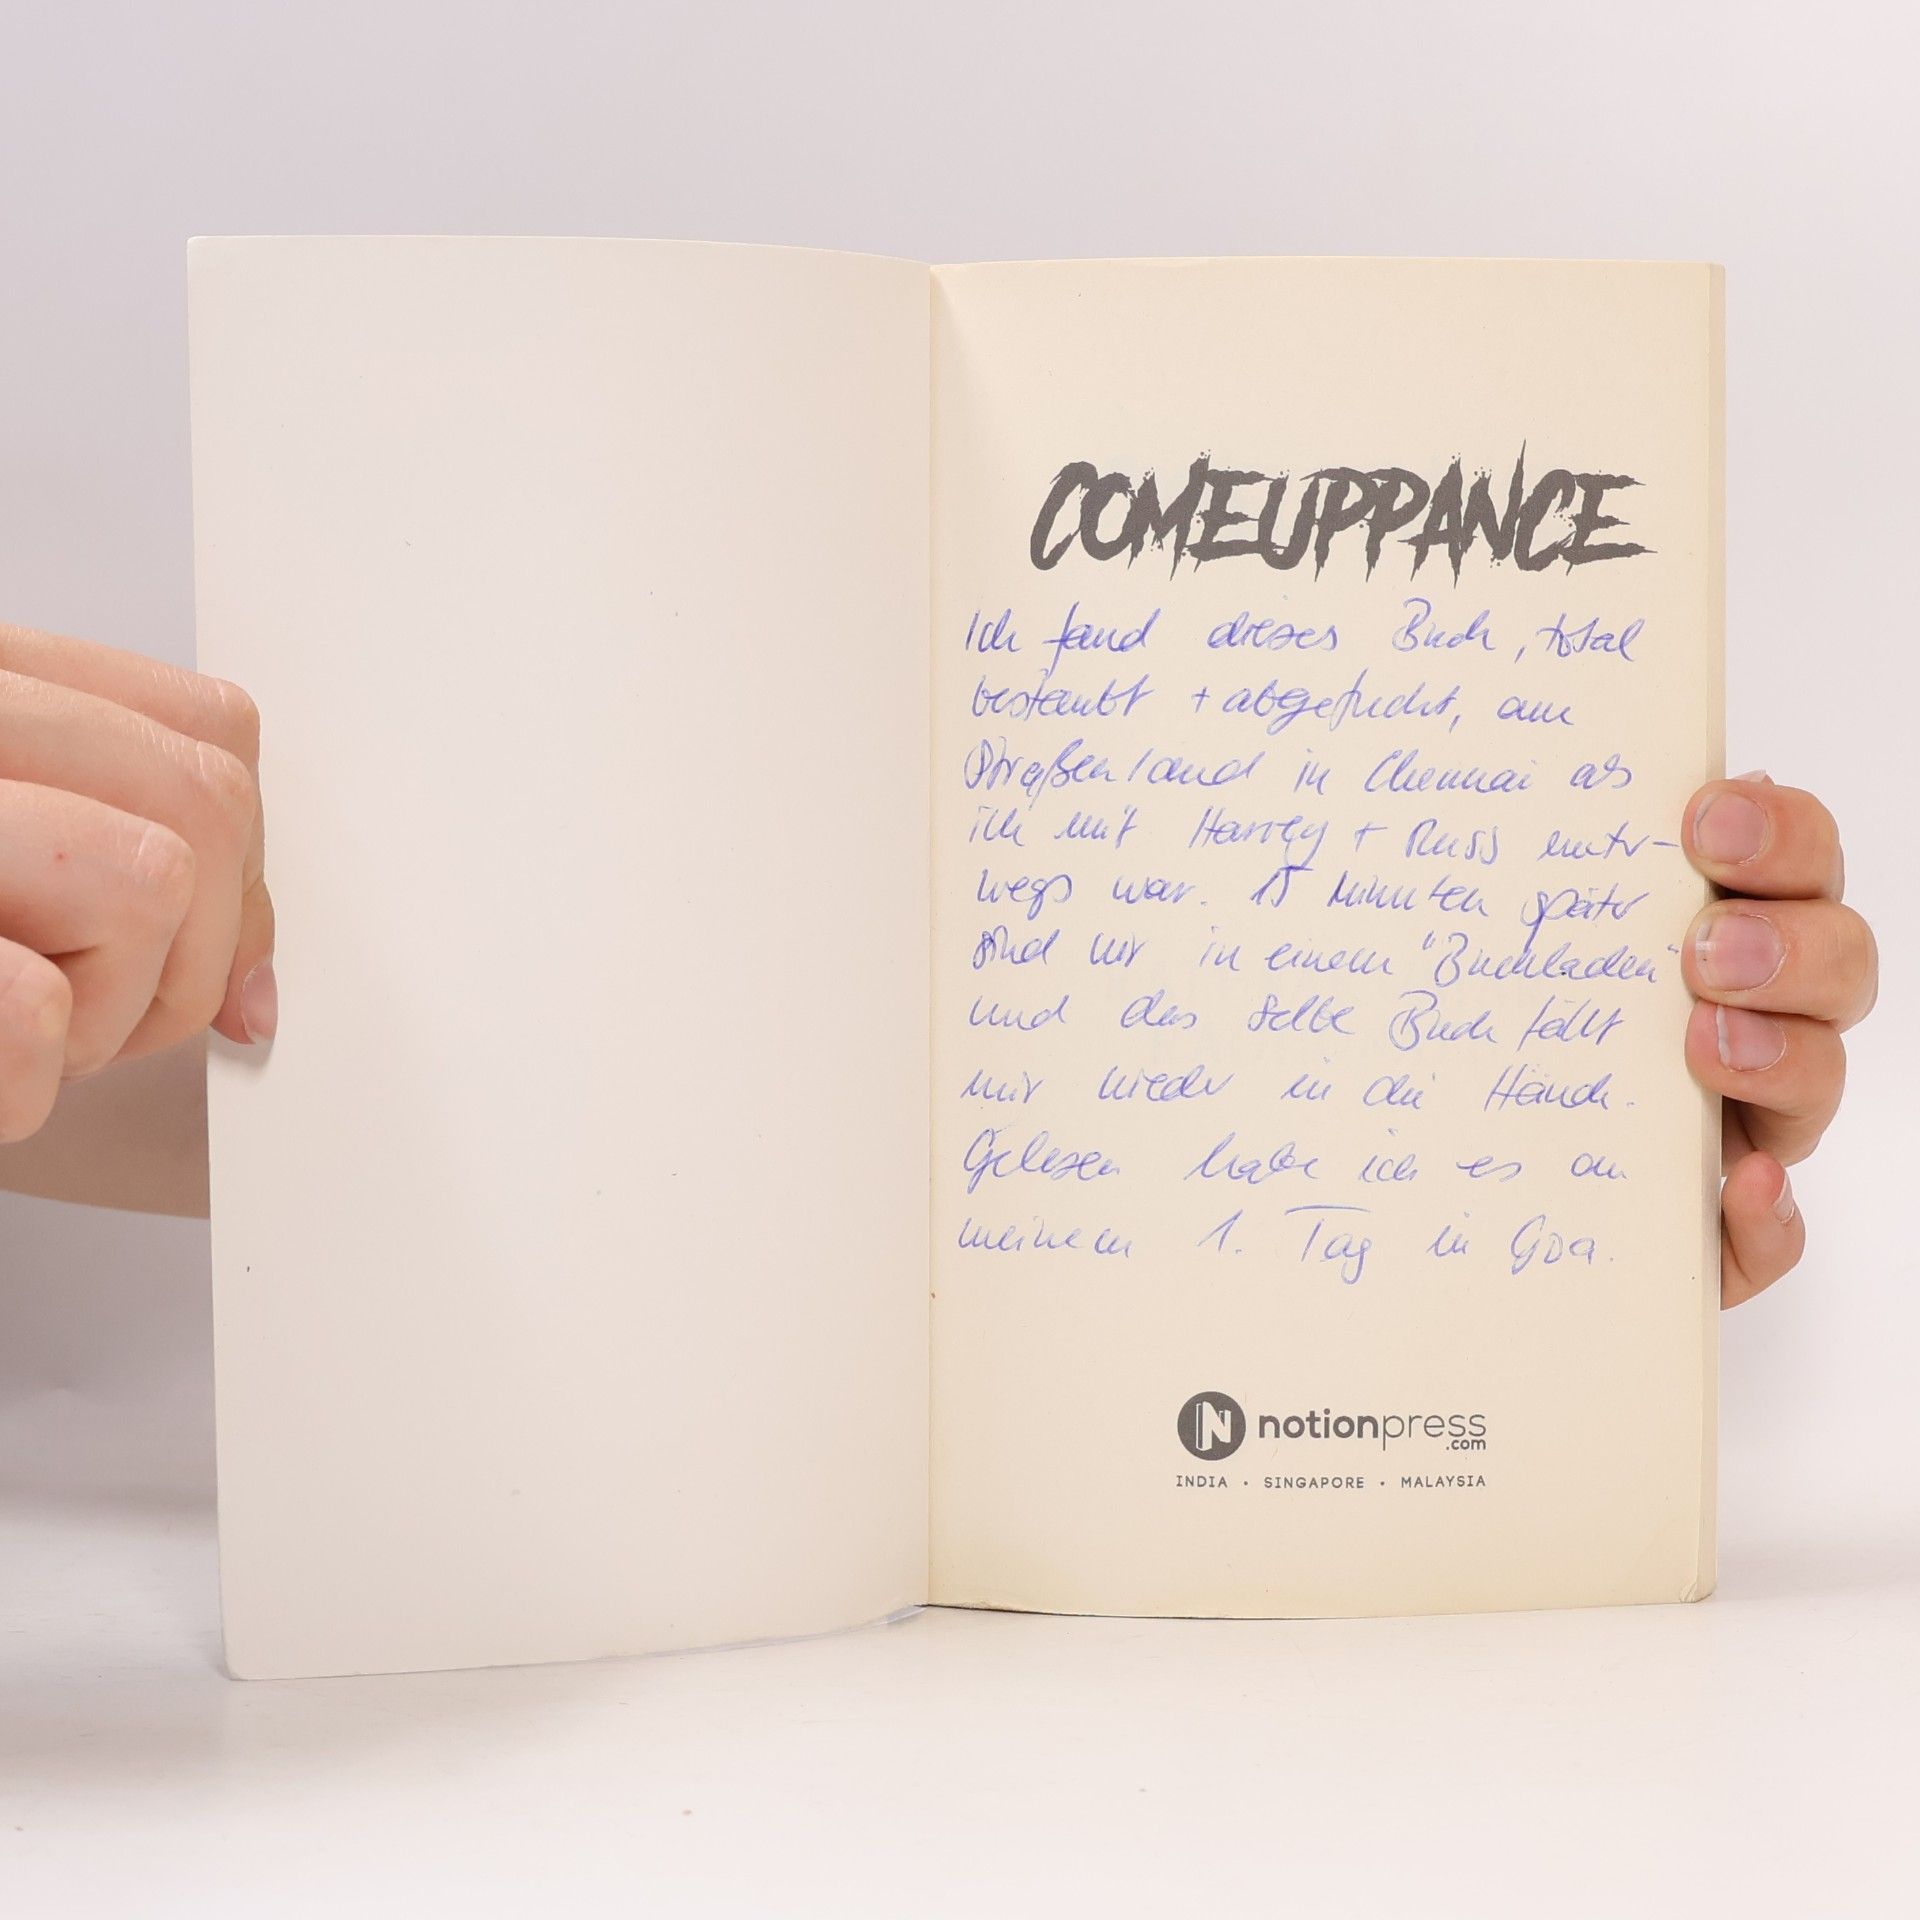 COMEUPPANCE
Ich fand dieses Buch, total
bestaubt + abgefuckt, am
Straßenrand in Chennai als
ich mit Harvey + Russ unter-
wegs war. 15 Minuten später
sind wir in einem "Buchladen"
und das selbe Buch fällt
mir wieder in die Hände.
Gelesen habe ich es an
meinem 1. Tag in Goa.
N notionpress
.com
INDIA • SINGAPORE • MALAYSIA